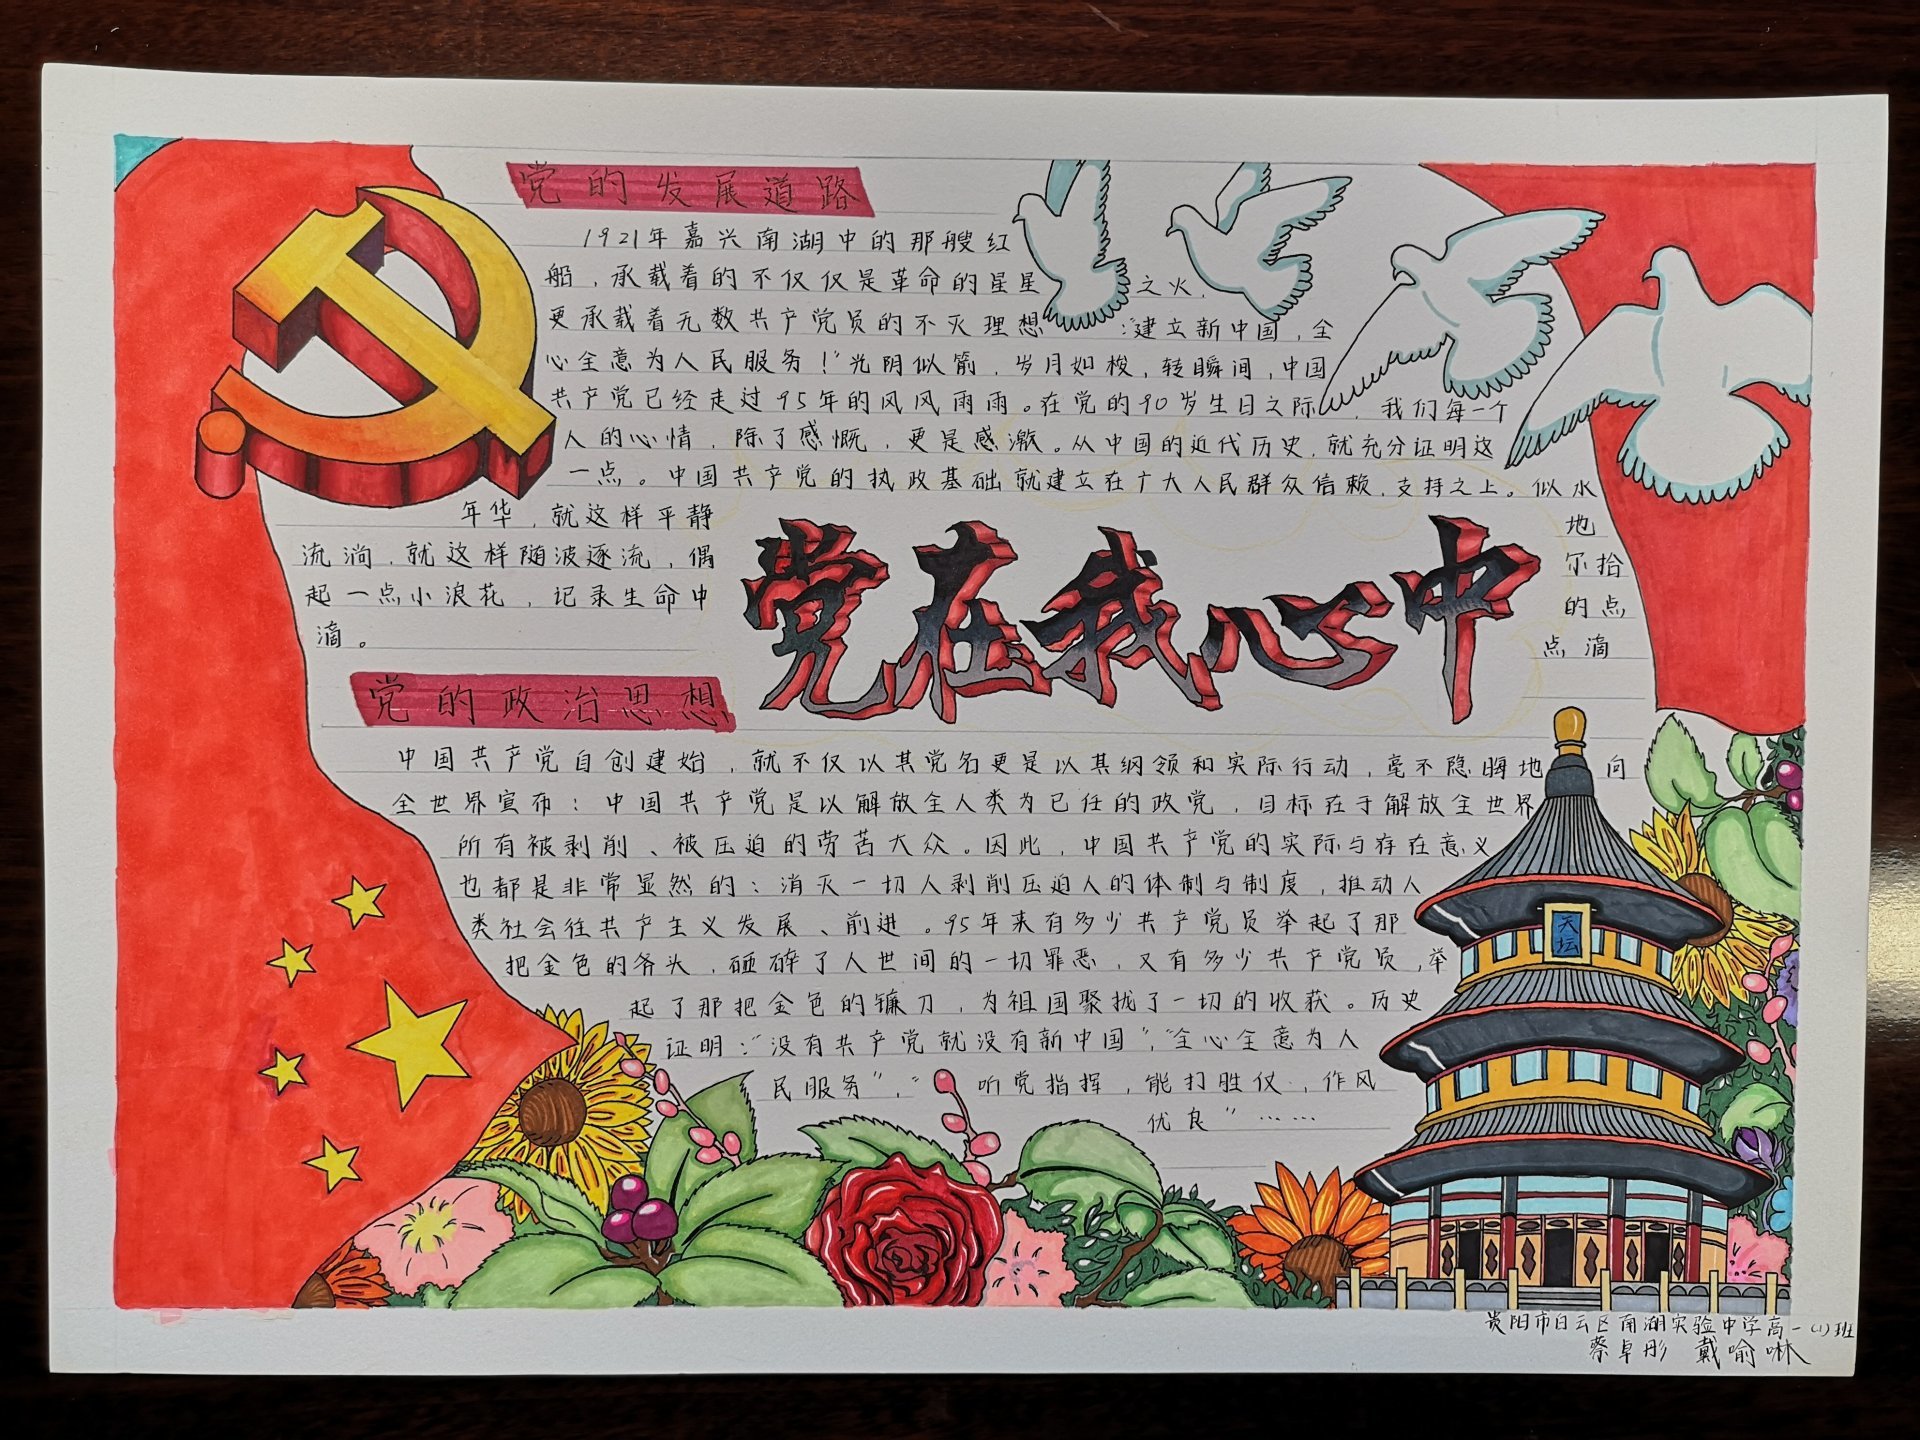 党的发展道路
1921年嘉兴南湖中的那艘红
船，承载着的不仅仅是革命的星星之火，
更承载着无数共产党员的不灭理想："建立新中国，全
心全意为人民服务！"光阴似箭，岁月如梭，转瞬间，中国
共产党已经走过95年的风风雨雨。在党的90岁生日之际，我们每一个
人的心情，除了感慨，更是感激。从中国的近代历史，就充分证明这
一点。中国共产党的执政基础就建立在广大人民群众信赖，支持之上。似水
年华，就这样平静地
流淌，就这样随波逐流，偶尔拾
起一点小浪花，记录生命中的点
点滴
滴。
党在我心中
党的政治思想
中国共产党自创建始，就不仅以其党名更是以其纲领和实际行动，毫不隐晦地向
全世界宣布：中国共产党是以解放全人类为已任的政党，目标在于解放全世界
所有被剥削、被压迫的劳苦大众。因此，中国共产党的实际与存在意义
也都是非常显然的：消灭一切人剥削压迫人的体制与制度，推动人
类社会往共产主义发展、前进。95年来有多少共产党员举起了那
把金色的斧头，砸碎了人世间的一切罪恶，又有多少共产党员，举
起了那把金色的镰刀，为祖国聚拢了一切的收获。历史
证明："没有共产党就没有新中国"，"全心全意为人
民服务"，"听党指挥，能打胜仗，作风
优良"……
天坛
贵阳市白云区南湖实验中学高一(1)班
蔡卓彤 戴喻啉